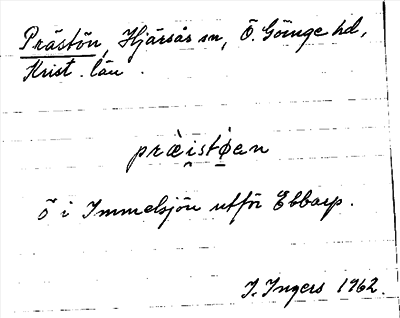 Prästön, Hjärsås sn, Ö. Göinge hd,
Krist. län.
præ̀i̯stǿ̣en
ö i Immelsjön utför Ebbarp.
I. Ingers 1962.